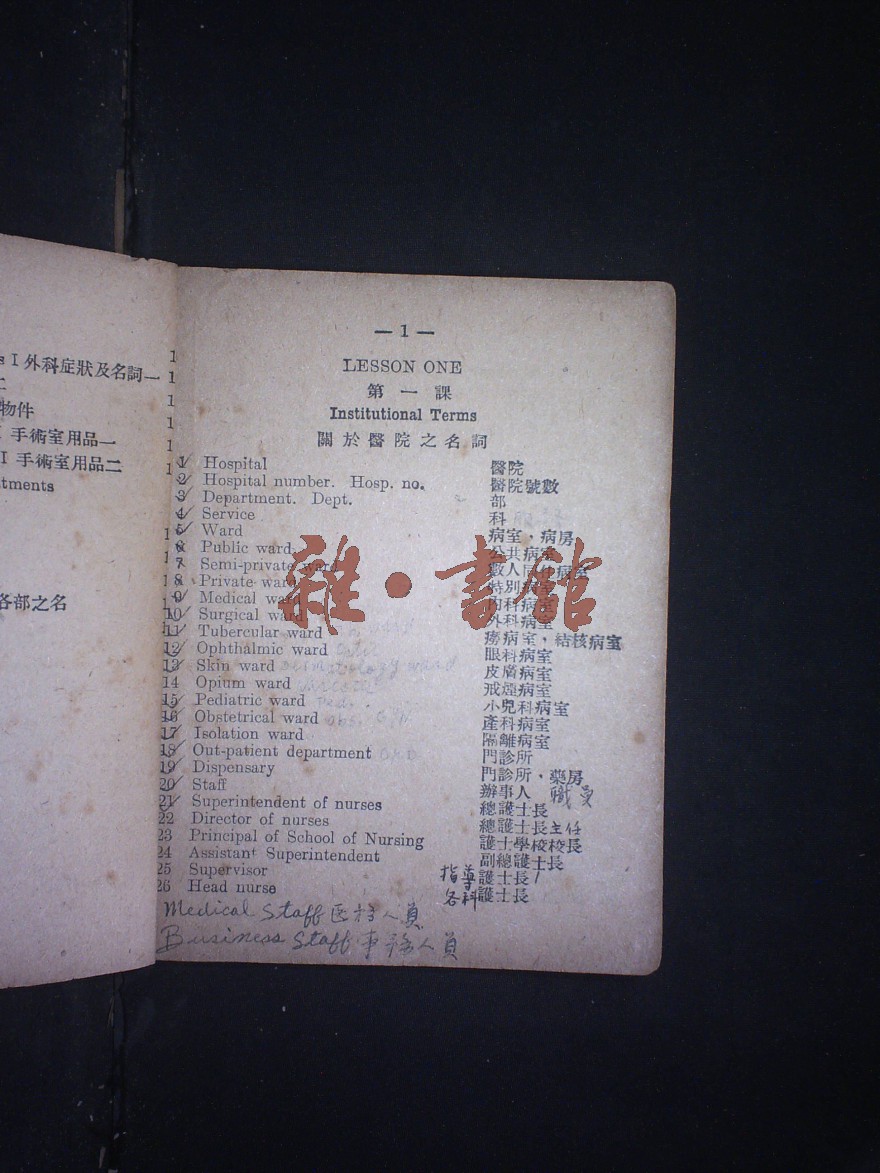 s I 外科症狀及名詞一
二
物件
I 手術室用品一
I I 手術室用品二
tments
各部之名
— 1 —
LESSON ONE
第一課
Institutional Terms
關於醫院之名詞
1 Hospital 醫院
2 Hospital number. Hosp. no. 醫院號數
3 Department. Dept. 部
4 Service 科
5 Ward 病室，病房
6 Public ward. 公共病室
7 Semi-private ward 數人同住病室
8 Private ward 特別病室
9 Medical ward 內科病室
10 Surgical ward 外科病室
11 Tubercular ward 癆病室，結核病室
12 Ophthalmic ward 眼科病室
13 Skin ward Dermatology ward 皮膚病室
14 Opium ward 戒煙病室
15 Pediatric ward Ped. 小兒科病室
16 Obstetrical ward obs. 產科病室
17 Isolation ward 隔離病室
18 Out-patient department O.P.D 門診所
19 Dispensary 門診所，藥房
20 Staff 辦事人 職員
21 Superintendent of nurses 總護士長
22 Director of nurses 總護士長主任
23 Principal of School of Nursing 護士學校校長
24 Assistant Superintendent 副總護士長
25 Supervisor 指導護士長
26 Head nurse 各科護士長
Medical Staff 医務人員
Business Staff 事務人員
雜·書館